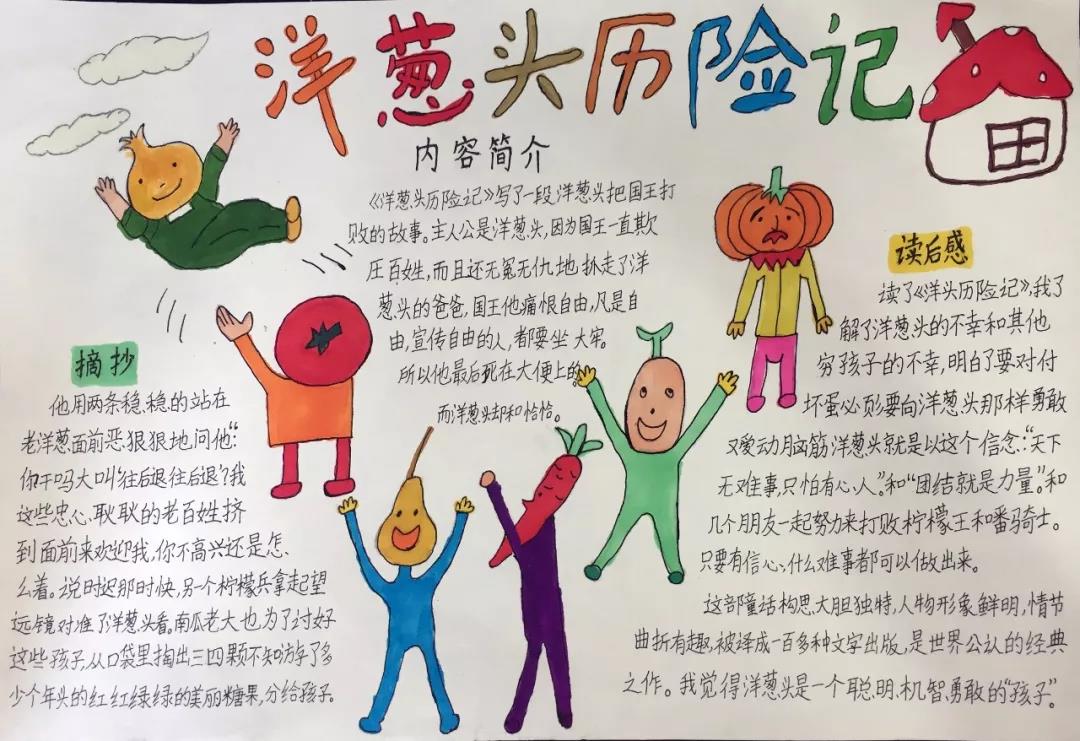 洋葱头历险记
内容简介
《洋葱头历险记》写了一段洋葱头把国王打
败的故事。主人公是洋葱头,因为国王一直欺
压百姓,而且还无冤无仇地抓走了洋
葱头的爸爸,国王他痛恨自由,凡是自
由,宣传自由的人,都要坐大牢。
所以他最后死在大便上的
而洋葱头却和恰恰。
摘抄
他用两条稳稳的站在
老洋葱面前恶狠狠地问他:“
你干吗大叫“往后退往后退”?我
这些忠心耿耿的老百姓挤
到面前来欢迎我,你不高兴还是怎
么着。说时迟那时快,另一个柠檬兵拿起望
远镜对准了洋葱头看。南瓜老大也为了讨好
这些孩子,从口袋里掏出三四颗不知放了多
少个年头的红红绿绿的美丽糖果,分给孩子。
读后感
读了《洋头历险记》,我了
解了洋葱头的不幸和其他
穷孩子的不幸,明白了要对付
坏蛋必须要向洋葱头那样勇敢
又爱动脑筋洋葱头就是以这个信念:“天下
无难事,只怕有心人。”和“团结就是力量”。和
几个朋友一起努力来打败柠檬王和番骑士。
只要有信心、什么难事都可以做出来。
这部童话构思大胆独特,人物形象鲜明,情节
曲折有趣,被译成一百多种文字出版,是世界公认的经典
之作。我觉得洋葱头是一个聪明、机智勇敢的“孩子”